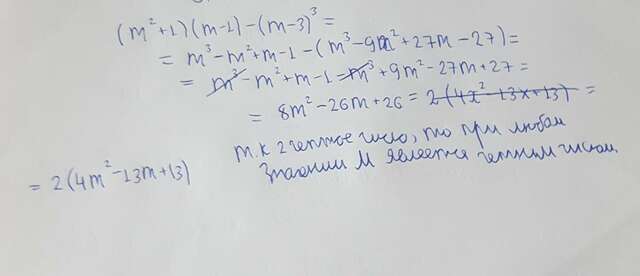 (m²+1)(m-1)-(m-3)³=
= m³-m²+m-1-(m³-9m²+27m-27)=
= m³-m²+m-1-m³+9m²-27m+27=
= 8m²-26m+26= 2(4x²-13x+13) =
= 2(4m²-13m+13)
т.к 2 четное число, то при любом
значении M является четным числом.